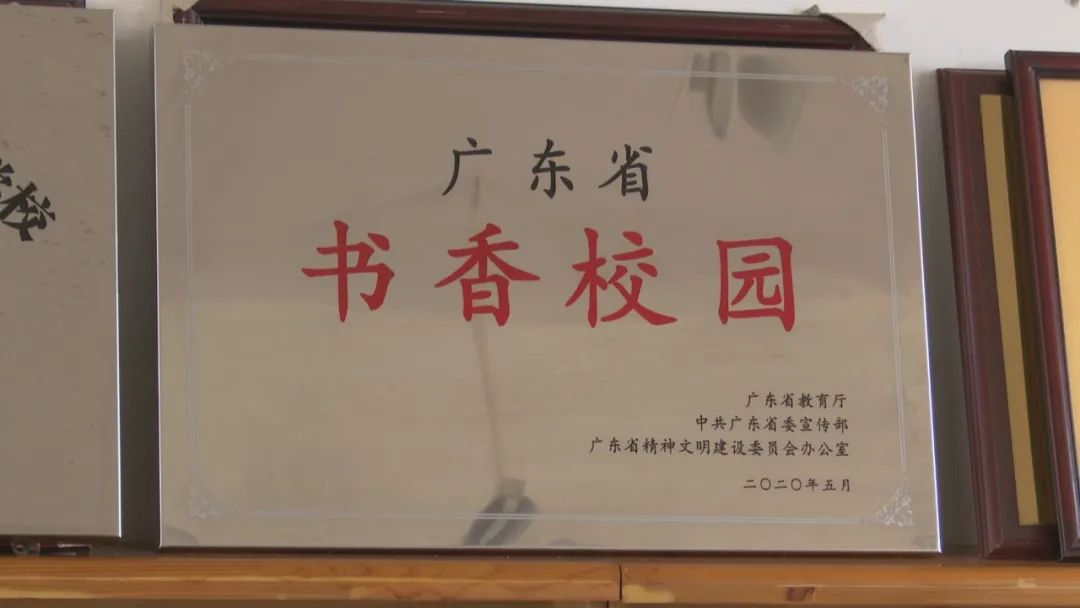 广东省
书香校园
广东省教育厅
中共广东省委宣传部
广东省精神文明建设委员会办公室
二〇二〇年五月